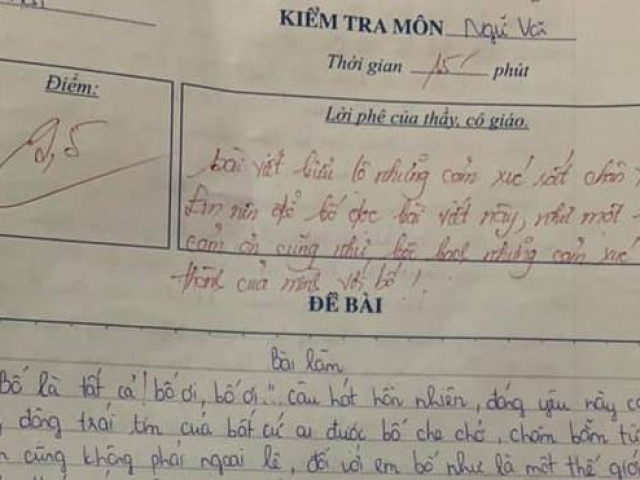 KIỂM TRA MÔN Ngữ Văn
Thời gian 15' phút
Điểm:
9,5
Lời phê của thầy, cô giáo.
bài viết biểu lộ những cảm xúc rất chân
Em nên để bố đọc bài viết này, như một
cảm ơn cũng như bộc bạch những cảm xúc
thành của mình với bố !
ĐỀ BÀI
Bài làm
Bố là tất cả! bố ơi, bố ơi..." câu hát hồn nhiên, đáng yêu này
động trái tim của bất cứ ai được bố che chở, chăm bẵm từ
cũng không phải ngoại lệ, đối với em bố như là một thế giới